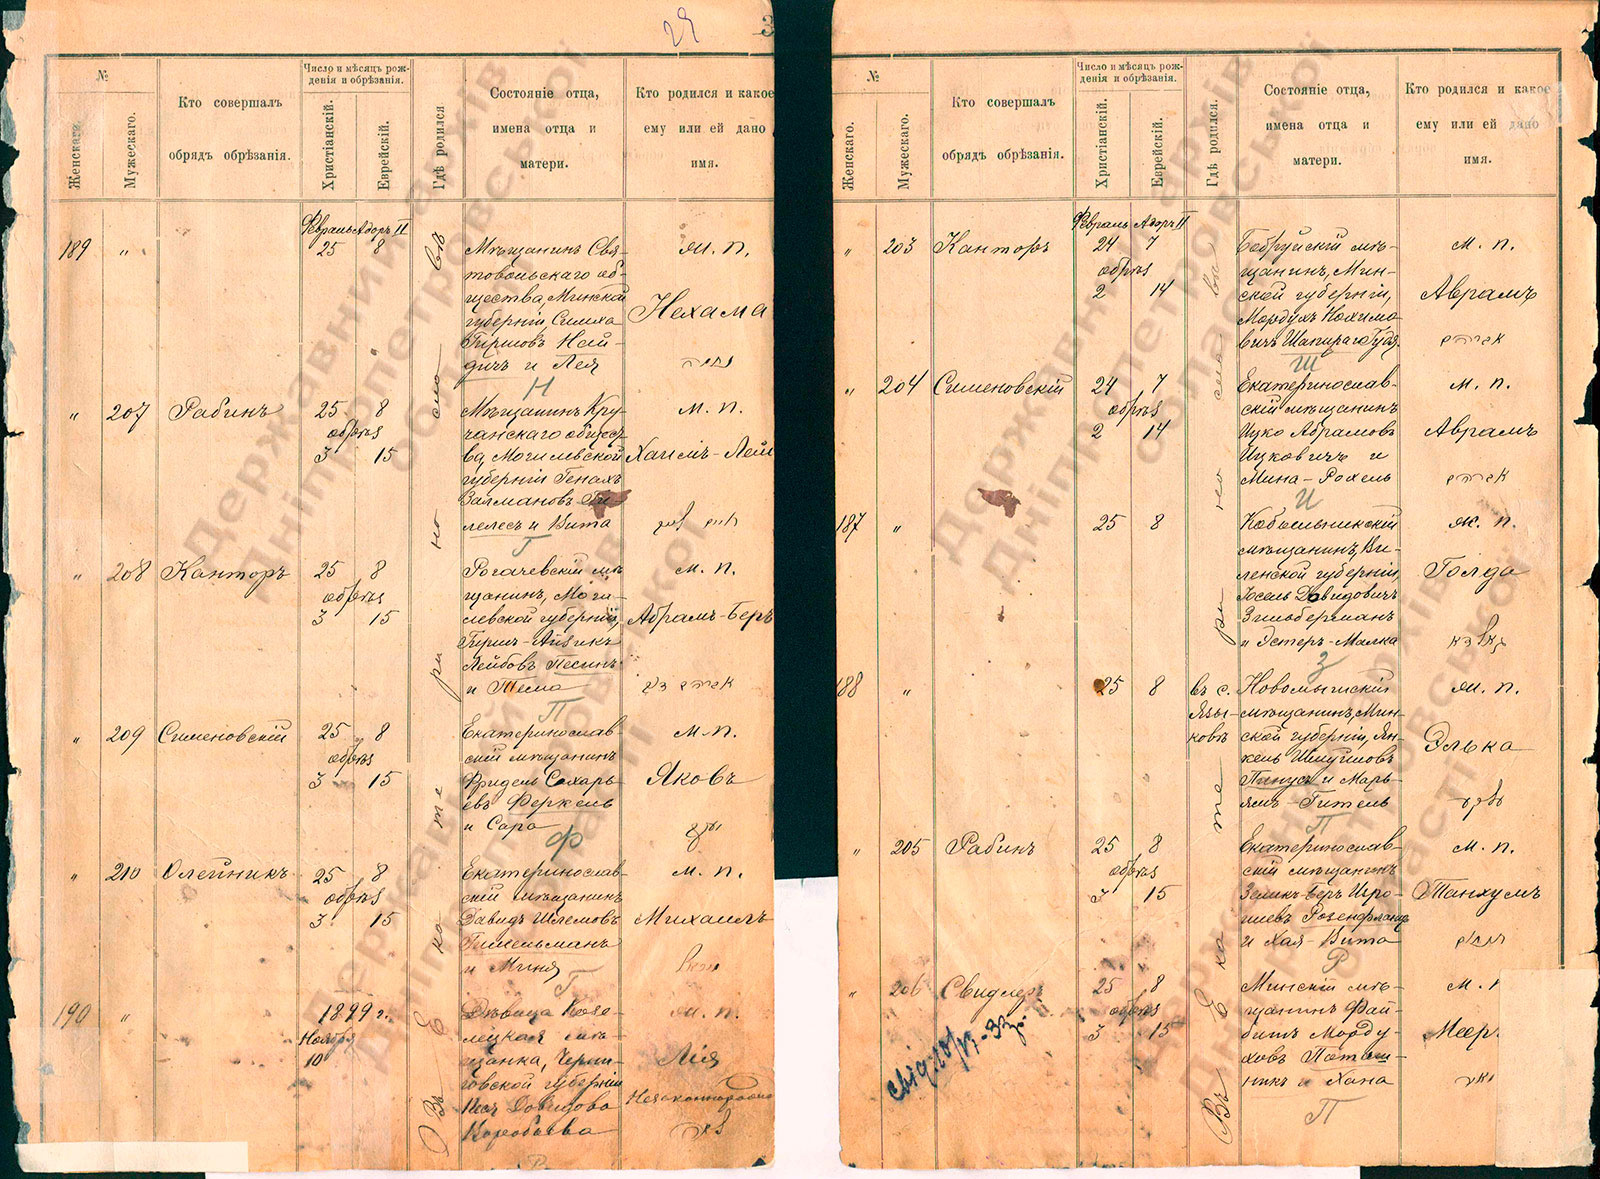 29
3
№
Женскаго.
Мужескаго.
Кто совершалъ
обрядъ обрѣзанія.
Число и мѣсяцъ рож-
денія и обрѣзанія.
Христіанскій.
Еврейскій.
Гдѣ родился
Состояніе отца,
имена отца и
матери.
Кто родился и какое
ему или ей дано
имя.
Въ Екатеринославѣ
Февраль Адоръ II
189 " 25 8
Мѣщанинъ Свя-
товольскаго об-
щества, Минской
губерніи, Симха
Гиршовъ Най-
дичъ и Лея
Н
ж. п.
Нехама
נחמה
" 207 Рабинъ 25 8
обрѣз
3 15
Мѣщанинъ Кру-
чанскаго общест
ва, Могилевской
губерніи Генахъ
Залмановъ Ги-
лелесъ и Вита
Г
м. п.
Хаимъ-Лейб
חיים ליב
" 208 Канторъ 25 8
обрѣз
3 15
Рогачевскій мѣ
щанинъ, Моги-
левской губерніи,
Гиршъ-Айзикъ
Лейбовъ Песинъ
и Тема
П
м. п.
Абрамъ-Беръ
אברהם בער
" 209 Сименовскій 25 8
обрѣз
3 15
Екатеринослав
скій мѣщанинъ
Фридель Сахарь-
евъ Феркель
и Сара
Ф
м. п.
Яковъ
יעקב
" 210 Олейникъ 25 8
обрѣз
3 15
Екатеринослав-
скій мѣщанинъ
Давидъ Шлемовъ
Гимельманъ
и Миня
Г
м. п.
Михаилъ
מיכאל
190 " 1899 г.
Ноября
10
Дѣвица Козе-
лецкая мѣ-
щанка, Черни-
говской губерніи
Песя Довидова
Воробьева
ж. п.
Лія
Незаконнорожд
לאה
№
Женскаго.
Мужескаго.
Кто совершалъ
обрядъ обрѣзанія.
Число и мѣсяцъ рож-
денія и обрѣзанія.
Христіанскій.
Еврейскій.
Гдѣ родился.
Состояніе отца,
имена отца и
матери.
Кто родился и какое
ему или ей дано
имя.
Въ Екатеринославѣ
Февраль Адоръ II
" 203 Канторъ 24 7
обрѣз
2 14
Бобруйскій мѣ-
щанинъ, Мин-
ской губерніи,
Мордухъ Нохимо
вичъ Шапиро Гудя
Ш
м. п.
Аврамъ
אברהם
" 204 Сименовскій 24 7
обрѣз
2 14
Екатеринослав-
скій мѣщанинъ
Ицко Абрамовъ
Ицковичъ и
Мина-Рохель
И
м. п.
Аврамъ
אברהם
187 " 25 8
Кобыльникский
мѣщанинъ, Ви-
ленской губерніи,
Іосель Довидовичъ
Зильберманъ
и Эстеръ-Малка
З
ж. п.
Голда
גאלדא
188 " 25 8
въ с.
Язы-
ковѣ
Новомышскій
мѣщанинъ, Мин-
ской губерніи, Ян-
кель Шмуйловъ
Пинусъ и Марь-
ямъ-Гитель
П
ж. п.
Элька
עלקא
" 205 Рабинъ 25 8
обрѣз
3 15
Екатеринослав-
скій мѣщанинъ
Зеликъ-Беръ
Розенфландъ
и Хая-Вита
Р
м. п.
Танхумъ
תנחום
" 206 Свидлеръ 25 8
обрѣз
3 15
Минскій мѣ-
щанинъ Фай-
бишъ Морду-
ховъ Поташ-
никъ и Хана
П
м. п
Мееръ
מאיר
Державний архів
Дніпропетровської
області